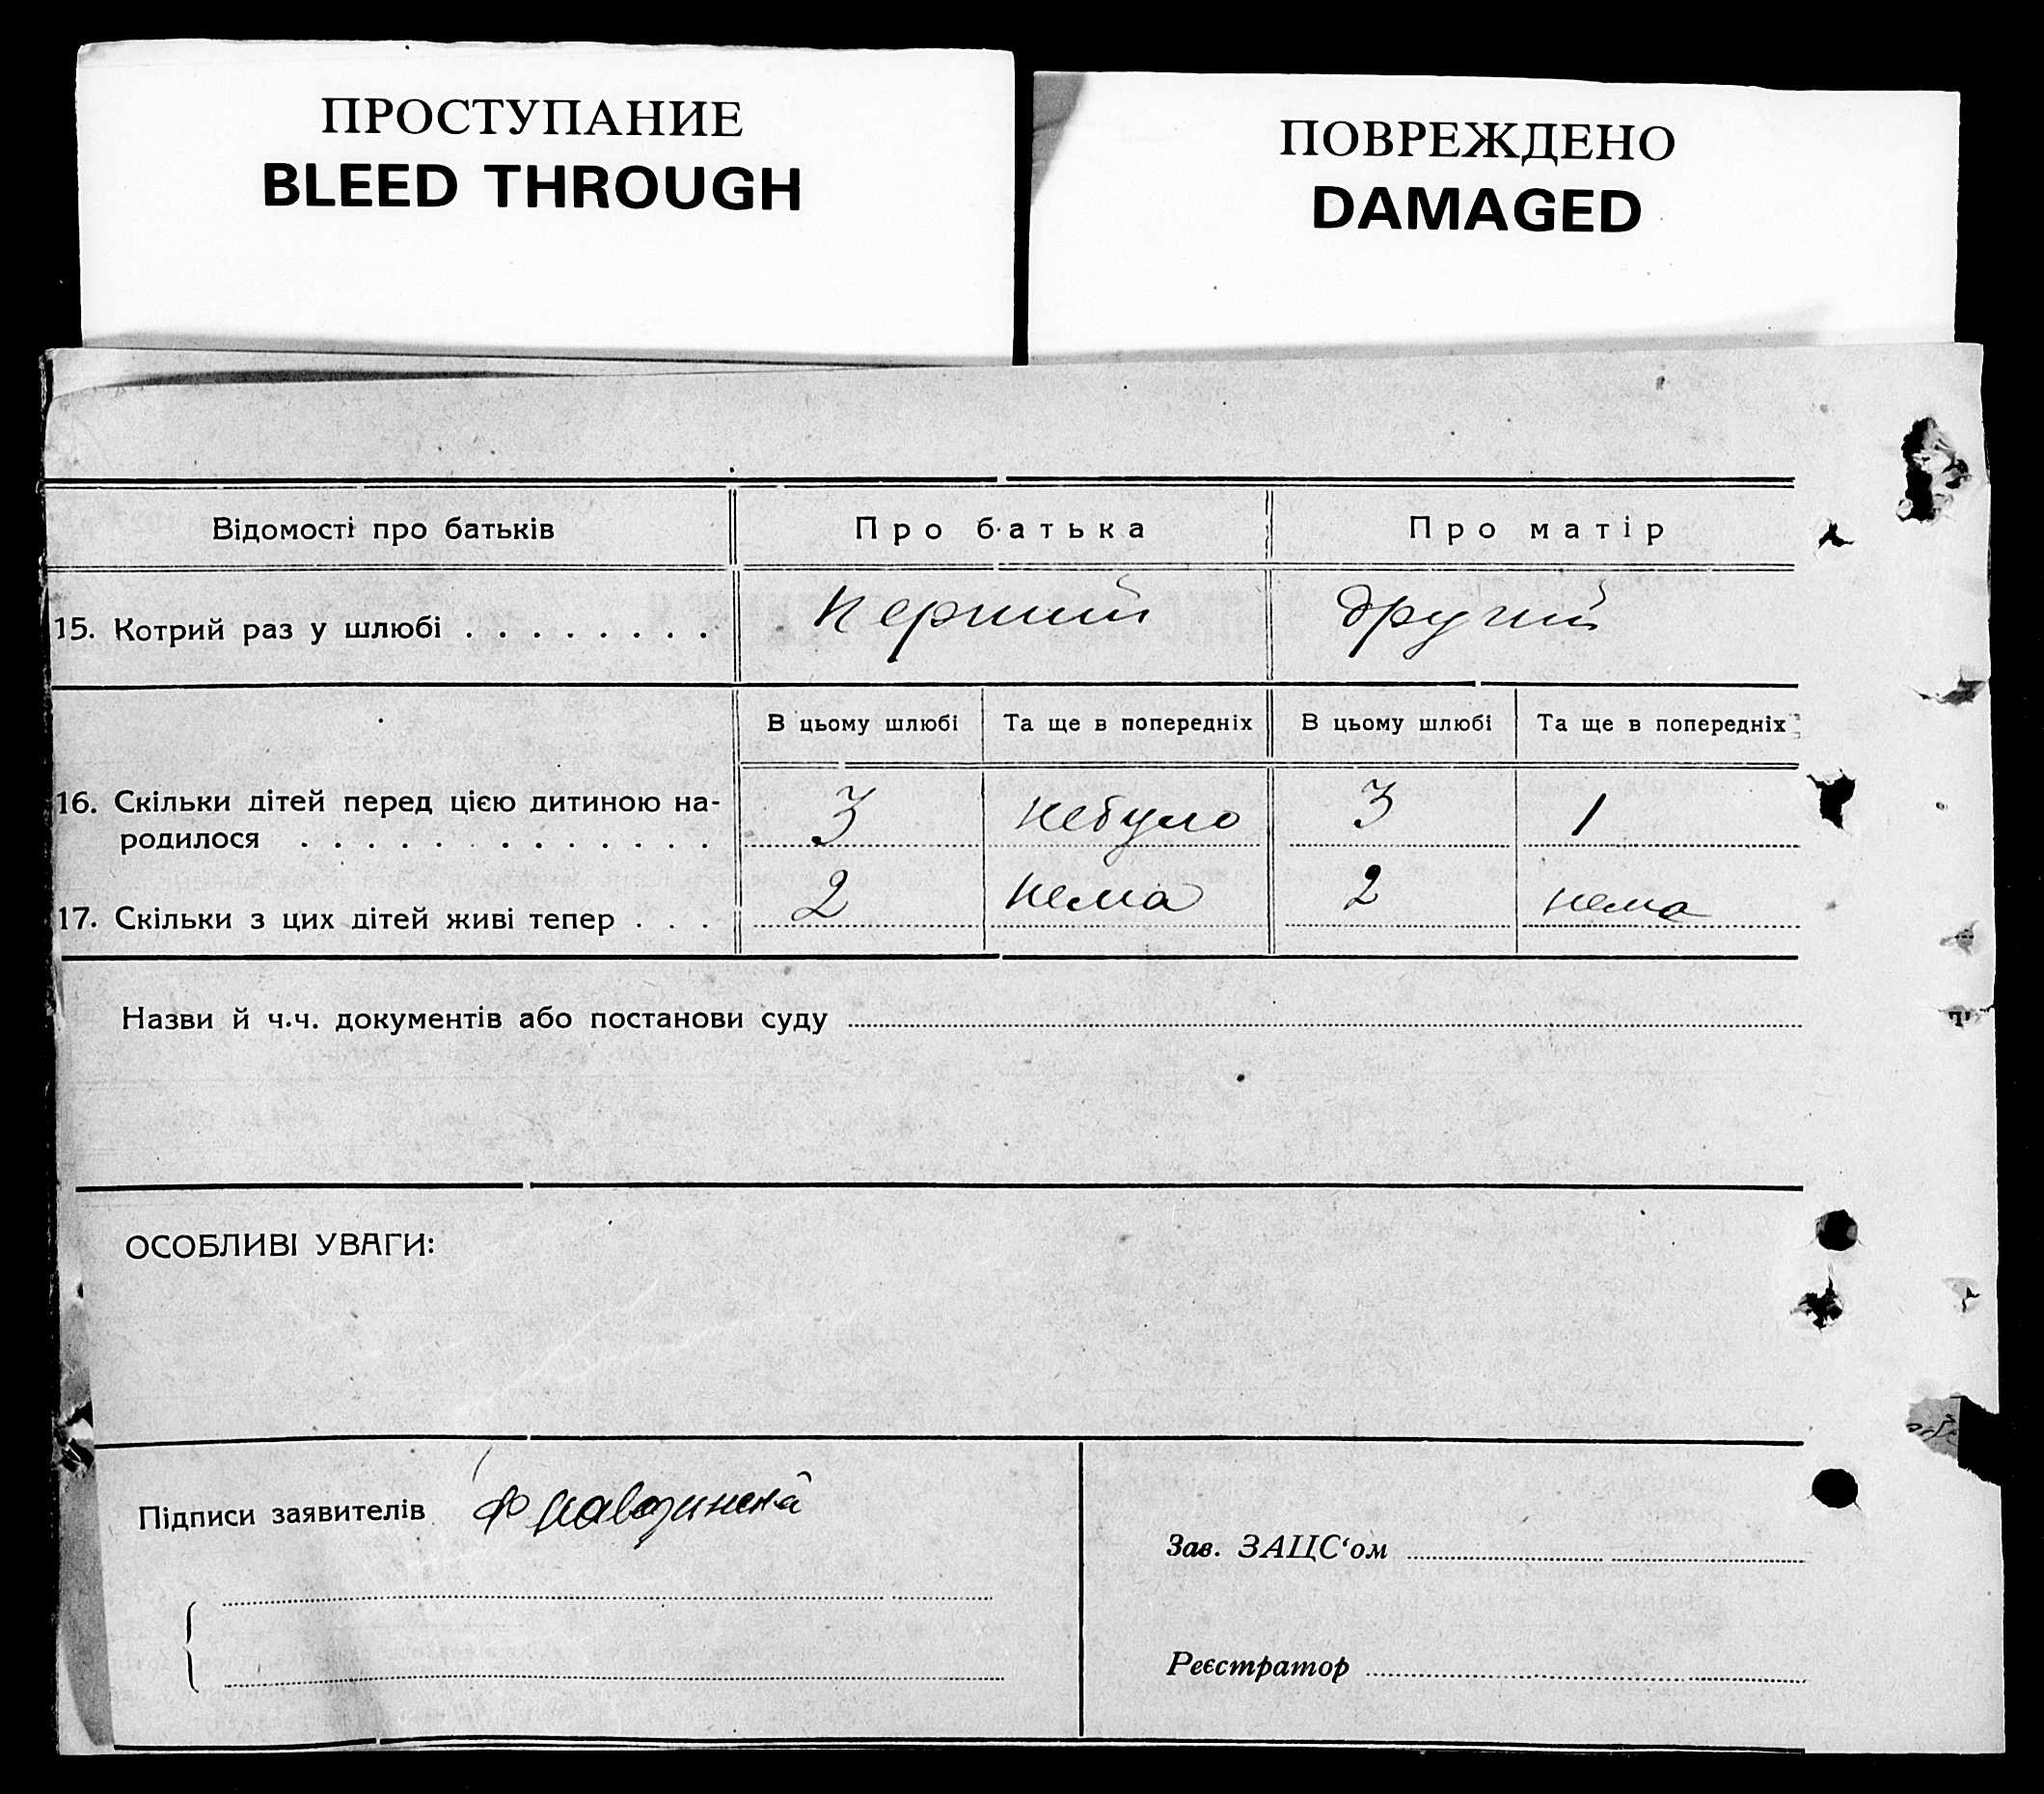 ПРОСТУПАНИЕ
BLEED THROUGH
ПОВРЕЖДЕНО
DAMAGED
Відомості про батьків Про батька Про матір
15. Котрий раз у шлюбі . . . . . . . . Перший Другий
В цьому шлюбі Та ще в попередніх В цьому шлюбі Та ще в попередніх
16. Скільки дітей перед цією дитиною на-
родилося . . . . . . . . . . . . . 3 небуло 3 1
17. Скільки з цих дітей живі тепер . . . 2 нема 2 нема
Назви й ч.ч. документів або постанови суду
ОСОБЛИВІ УВАГИ:
Підписи заявителів
Зав. ЗАЦС‘ом
Реєстратор